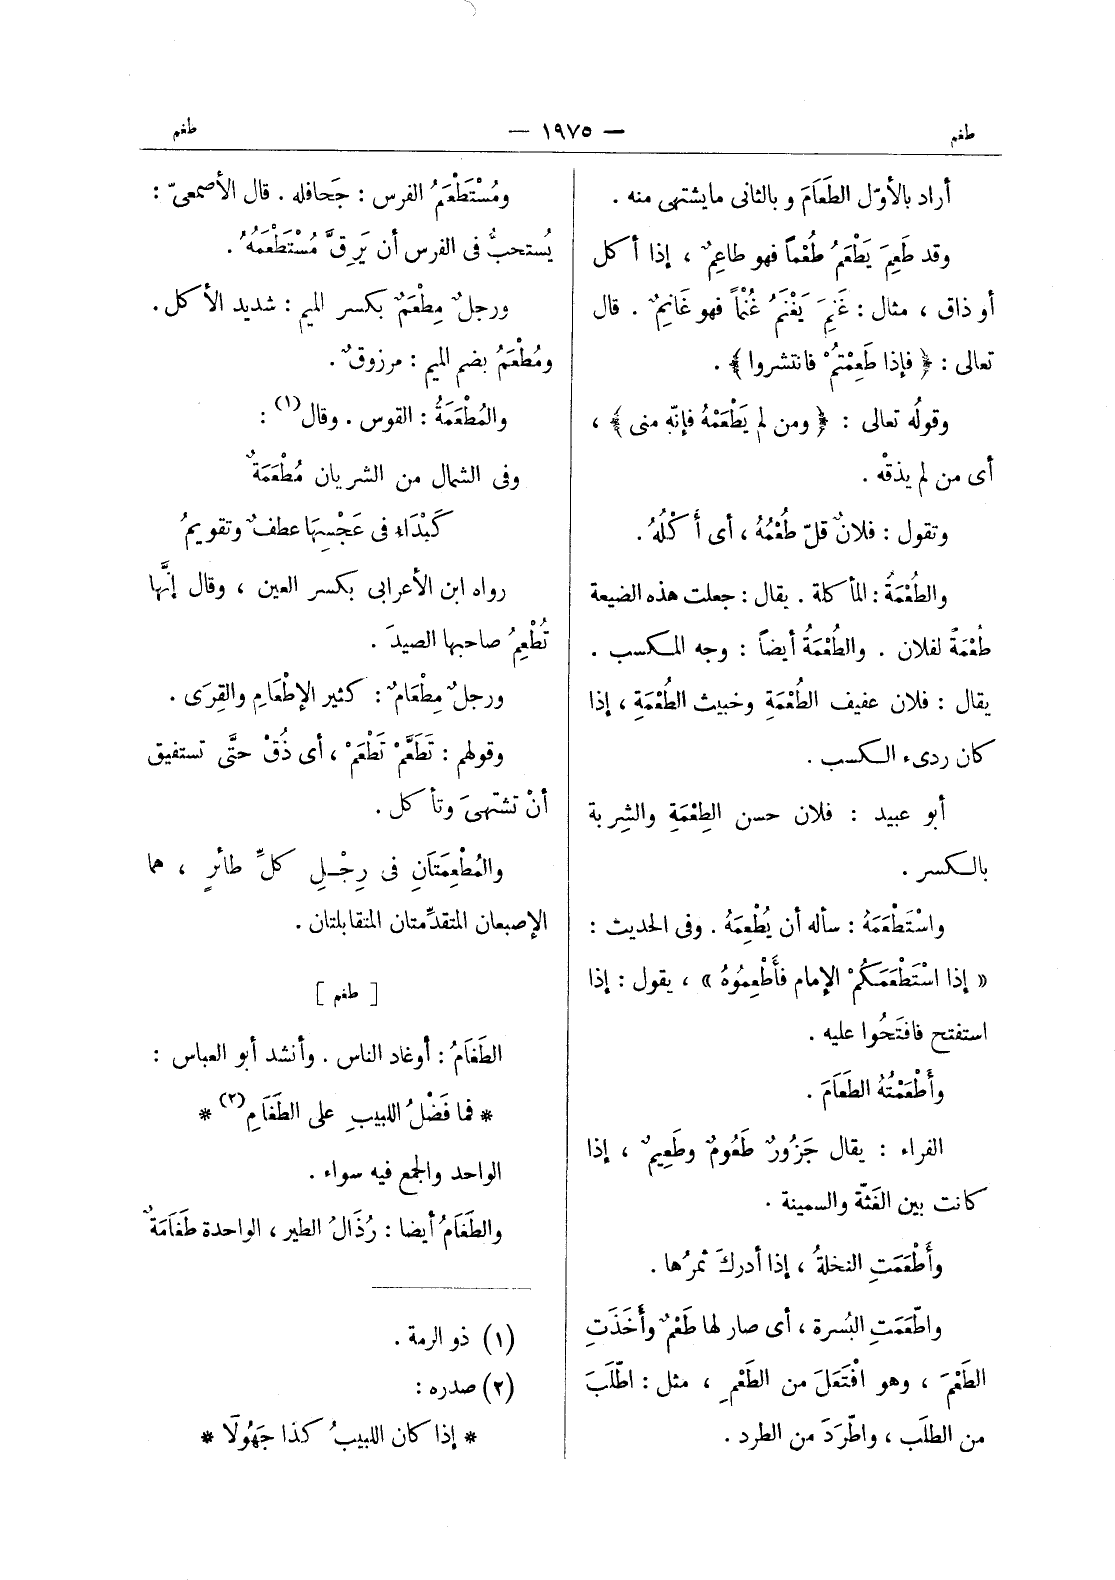 طغم — ١٩٧٥ — طغم
أراد بالأوّل الطَعَامَ و بالثانى مايشتهى منه .
وقد طَعِمَ يَطْعَمُ طُعْماً فهو طاعِمٌ ، إذا أكل
أو ذاق ، مثال : غَنِمَ يَغْنَمُ غُنْماً فهو غَانِمٌ . قال
تعالى : ﴿ فإذا طَعِمْتُمْ فانتشروا ﴾ .
وقولُه تعالى : ﴿ ومن لم يَطْعَمْهُ فإنّه منى ﴾ ،
أى من لم يذقْه .
وتقول : فلانٌ قلّ طُعْمُهُ ، أى أَكْلُهُ .
والطُعْمَةُ : المأكلة . يقال : جعلت هذه الضيعة
طُعْمَةً لفلان . والطُعْمَةُ أيضاً : وجه المكسب .
يقال : فلان عفيف الطُعْمَةِ وخبيث الطُعْمَةِ ، إذا
كان ردىء الكسب .
أبو عبيد : فلان حسن الطِعْمَةِ والشِربة
بالكسر .
واسْتَطْعَمَهُ : سأله أن يُطْعِمَهُ . وفى الحديث :
« إذا اسْتَطْعَمَكُمْ الإمام فأَطْعِمُوهُ » ، يقول : إذا
استفتح فافتَحُوا عليه .
وأَطْعَمْتُهُ الطَعَامَ .
الفراء : يقال جَزُورٌ طَعُومٌ وطَعِيمٌ ، إذا
كانت بين الغَثّة والسمينة .
وأَطْعَمَتِ النخلةُ ، إذا أدركَ ثمرُها .
واطّعَمَتِ البُسرة ، أى صار لها طَعْمٌ وأَخَذَتِ
الطَعْمَ ، وهو افْتَعَلَ من الطَعْمِ ، مثل : اطّلَبَ
من الطلَب ، واطّرَدَ من الطرد .
ومُسْتَطْعَمُ الفرس : جَحافله . قال الأصمعىّ :
يُستحبُّ فى الفرس أن يَرِقَّ مُسْتَطْعَمُهُ .
ورجلٌ مِطْعَمٌ بكسر الميم : شديد الأكل .
ومُطْعَمُ بضم الميم : مرزوقٌ .
والمُطْعَمَةُ : القوس . وقال(١) :
وفى الشمال من الشريان مُطْعَمَةٌ
كَبْدَاءِ فى عَجْسِهَا عطفٌ وتقويمُ
رواه ابن الأعرابى بكسر العين ، وقال إنَّها
تُطْعِمُ صاحبها الصيدَ .
ورجلٌ مِطْعَامٌ : كثير الإطْعَامِ والقِرَى .
وقولهم : تَطَعَّمْ تَطْعَمْ ، أى ذُقْ حتَّى تستفيق
أنْ تشتهىَ وتأكل .
والمُطْعِمَتَانِ فى رِجْلِ كلِّ طائرٍ ، هما
الإصبعان المتقدِّمتان المتقابلتان .
[ طغم ]
الطَغَامُ : أوغاد الناس . وأنشد أبو العباس :
* فما فَضْلُ اللبيبِ على الطَغَامِ(٢) *
الواحد والجمع فيه سواء .
والطَغَامُ أيضا : رُذَالُ الطير ، الواحدة طَغَامَةٌ
(١) ذو الرمة .
(٢) صدره :
* إذا كان اللبيبُ كذا جَهُولًا *